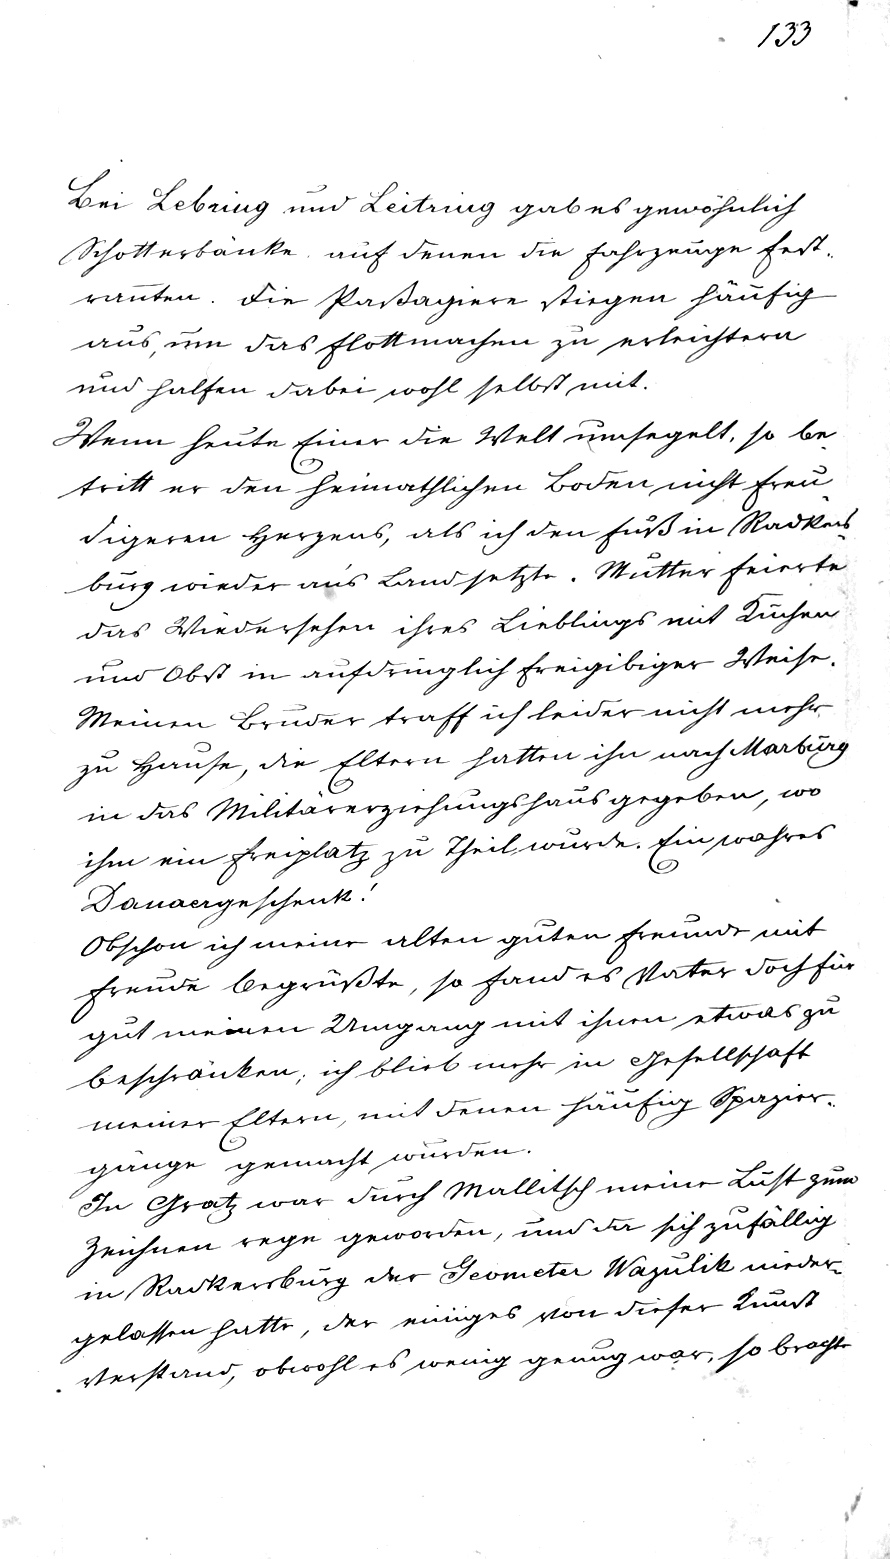 133
Bei Lebring und Leitring gab es gewöhnlich
Schotterbänke auf denen die Fahrzeuge fest-
rannten. Die Paßagiere stiegen häufig
aus, um das Flottmachen zu erleichtern
und halfen dabei wohl selbst mit.
Wenn heute Einer die Welt umsegelt, so be
tritt er den heimathlichen Boden nicht freu
digeren Herzens, als ich den Fuß in Radkers
burg wieder an's Land setzte. Mutter feierte
das Wiedersehen ihres Lieblings mit Kuchen
und Obst in aufdringlich freigibiger Weise.
Meinen Bruder traff ich leider nicht mehr
zu Hause, die Eltern hatten ihn nach Marburg
in das Militärerziehungshaus gegeben, wo
ihm ein Freiplatz zu Theil wurde. Ein wahres
Danaergeschenk!
Obschon ich meine alten guten Freunde mit
Freude begrüßte, so fand es Vater doch für
gut meinen Umgang mit ihnen etwas zu
beschränken; ich blieb mehr in Gesellschaft
meiner Eltern, mit denen häufig Spazier-
gänge gemacht wurden.
In Gratz war durch Mallitsch meine Lust zum
Zeichnen rege geworden, und da sich zufällig
in Radkersburg der Geometer Wazulik nieder-
gelassen hatte, der einiges von dieser Kunst
verstand, obwohl es wenig genug war, so brachte